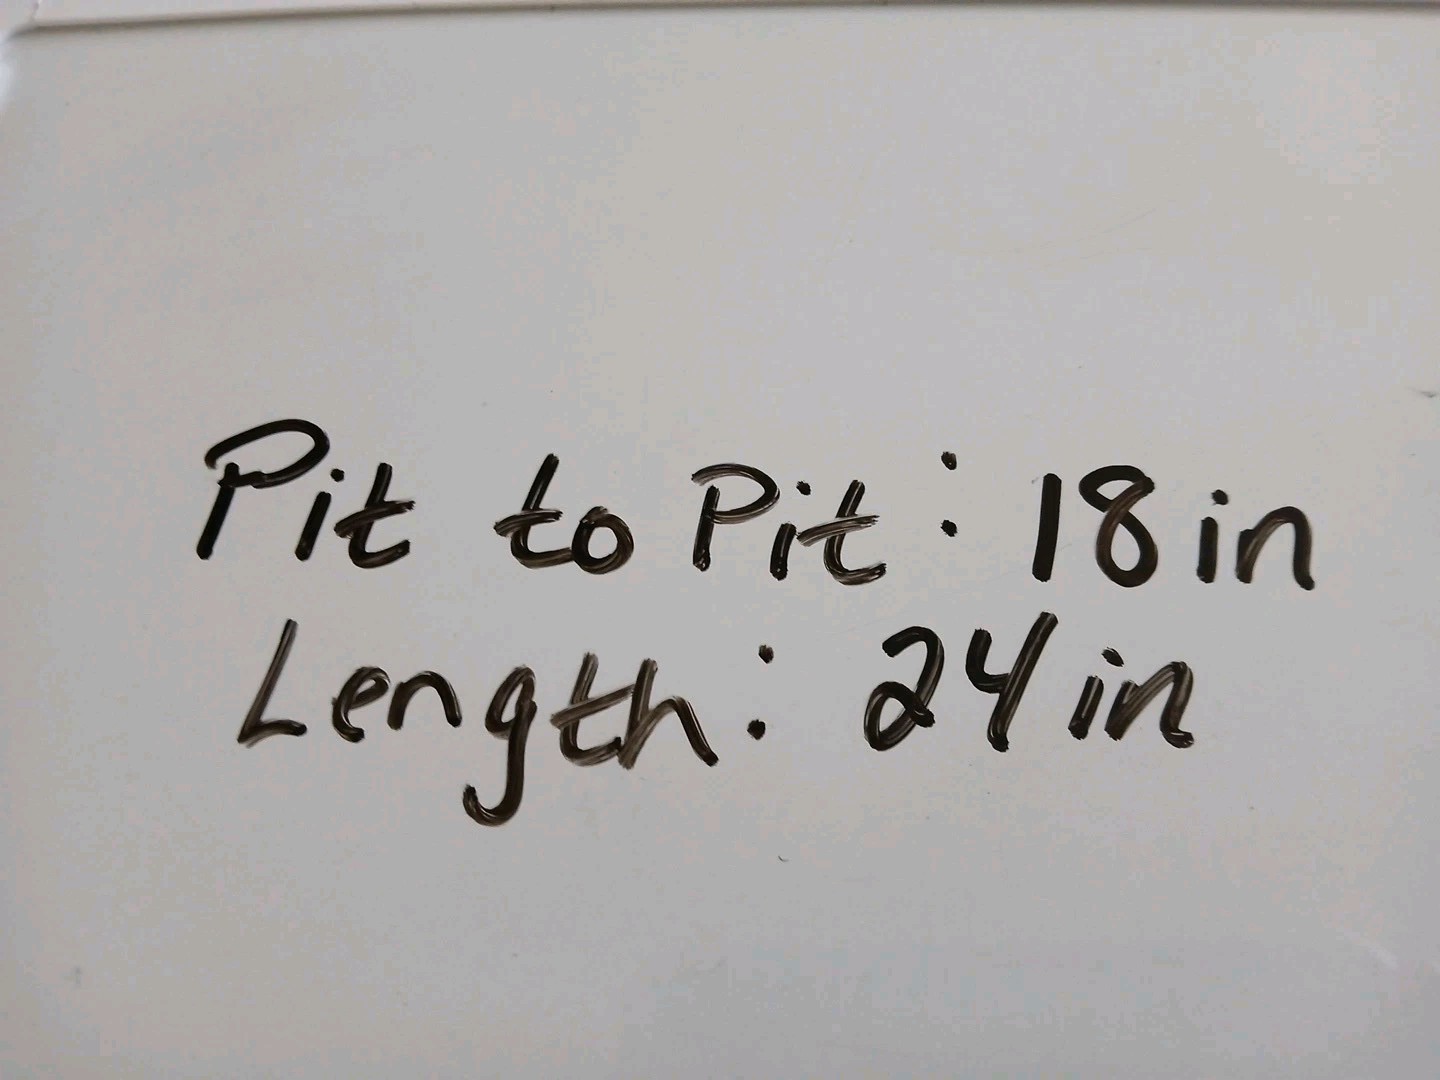 Pit to Pit: 18in
Length: 24in